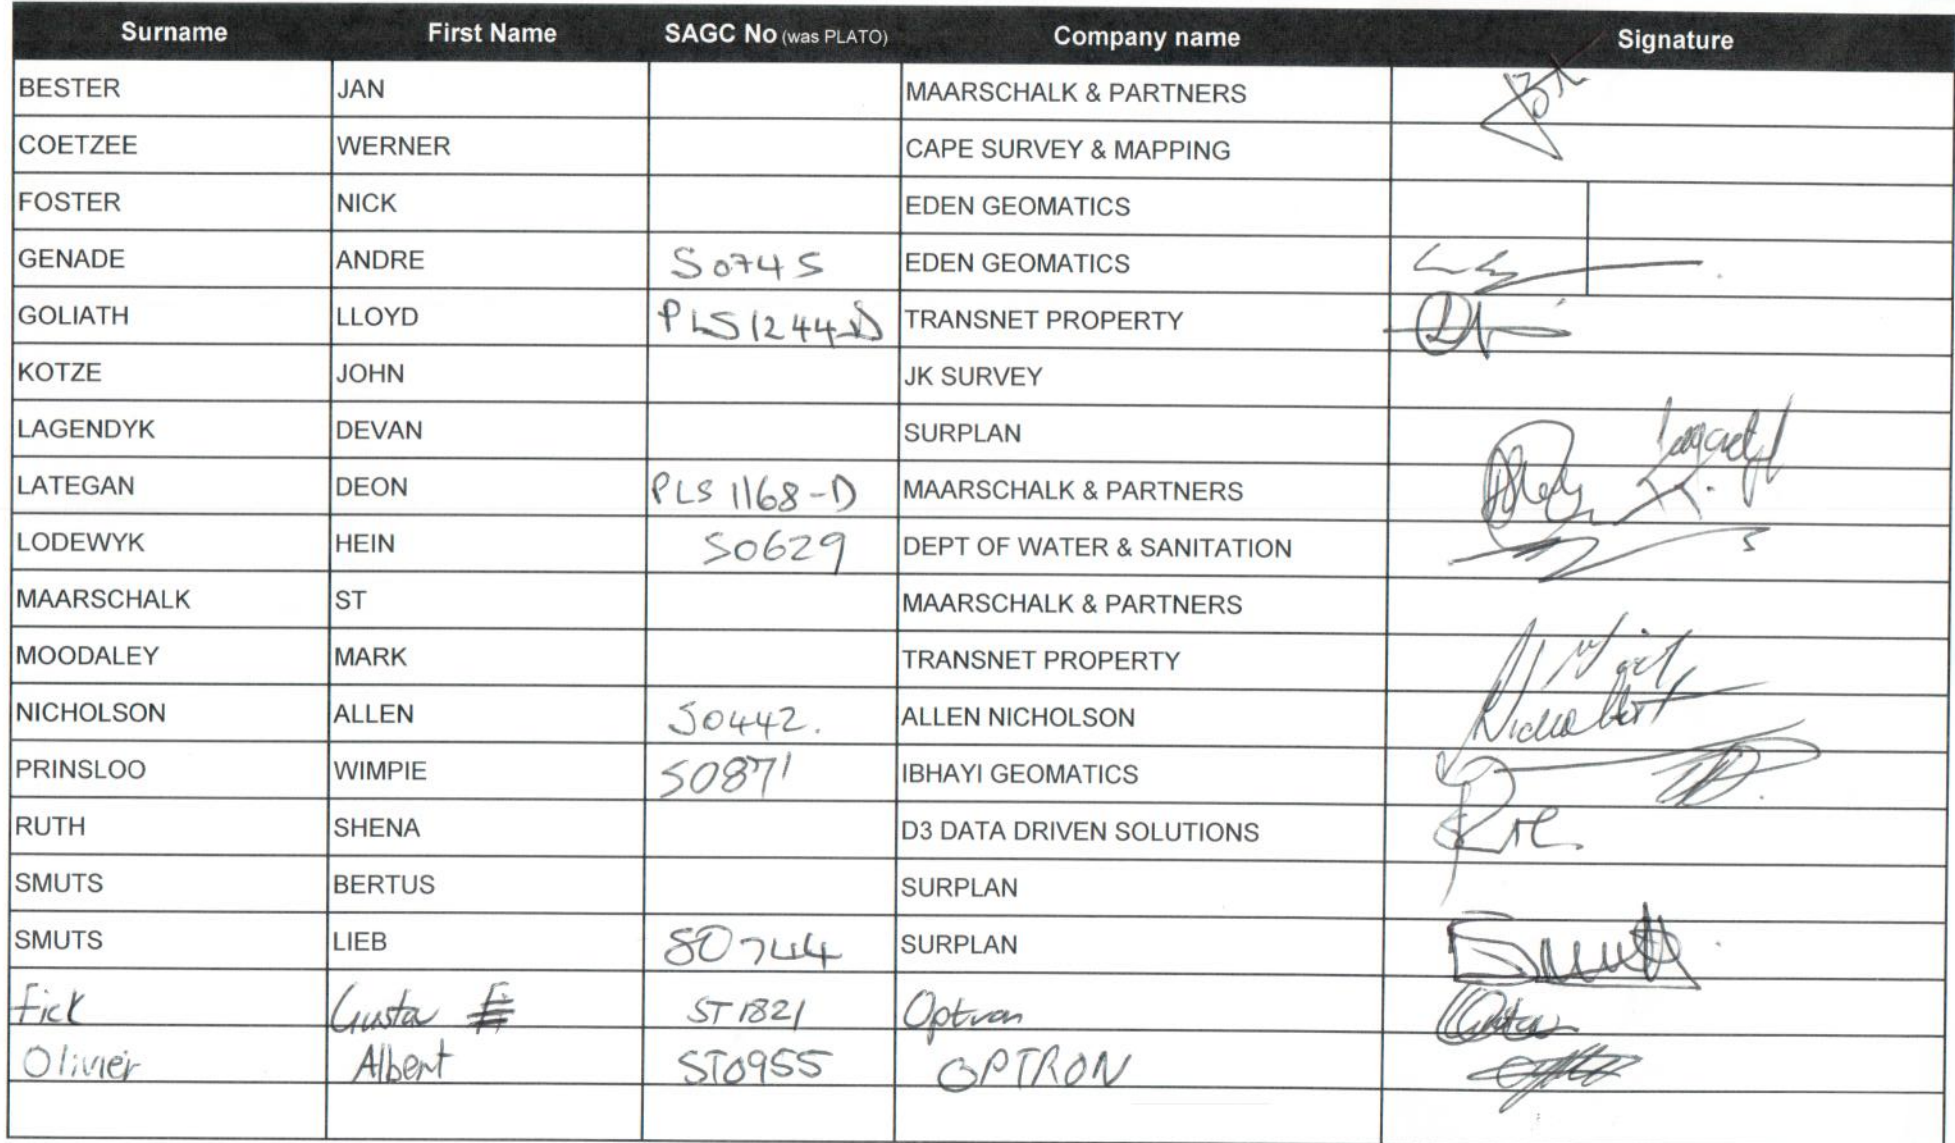 Surname First Name SAGC No (was PLATO) Company name Signature
BESTER JAN MAARSCHALK & PARTNERS
COETZEE WERNER CAPE SURVEY & MAPPING
FOSTER NICK EDEN GEOMATICS
GENADE ANDRE S0745 EDEN GEOMATICS
GOLIATH LLOYD PLS1244-D TRANSNET PROPERTY
KOTZE JOHN JK SURVEY
LAGENDYK DEVAN SURPLAN
LATEGAN DEON PLS 1168-D MAARSCHALK & PARTNERS
LODEWYK HEIN S0629 DEPT OF WATER & SANITATION
MAARSCHALK ST MAARSCHALK & PARTNERS
MOODALEY MARK TRANSNET PROPERTY
NICHOLSON ALLEN S0442. ALLEN NICHOLSON
PRINSLOO WIMPIE S0871 IBHAYI GEOMATICS
RUTH SHENA D3 DATA DRIVEN SOLUTIONS
SMUTS BERTUS SURPLAN
SMUTS LIEB S0744 SURPLAN
Fick Gustav ST1821 Optron
Olivier Albert ST0955 OPTRON